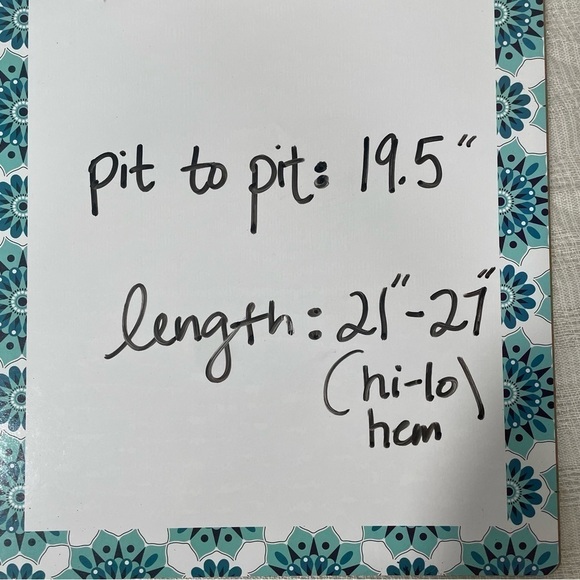 pit to pit: 19.5"
length: 21"-27"
(hi-lo)
hem